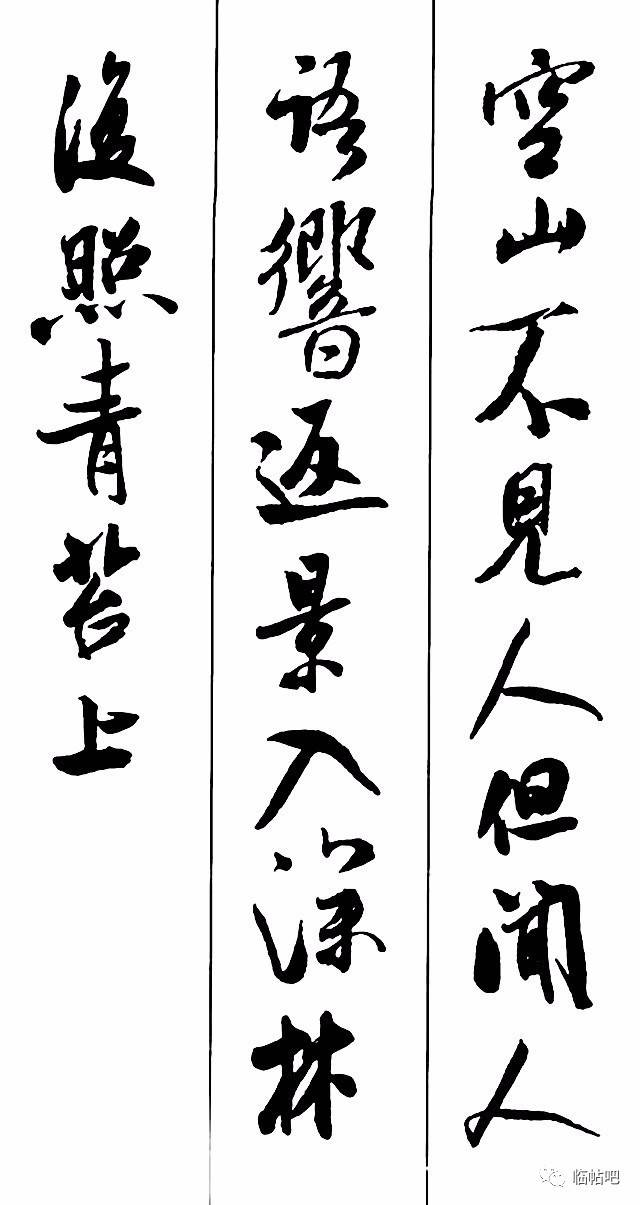 空山不見人但聞人
語響返景入深林
復照青苔上
临帖吧